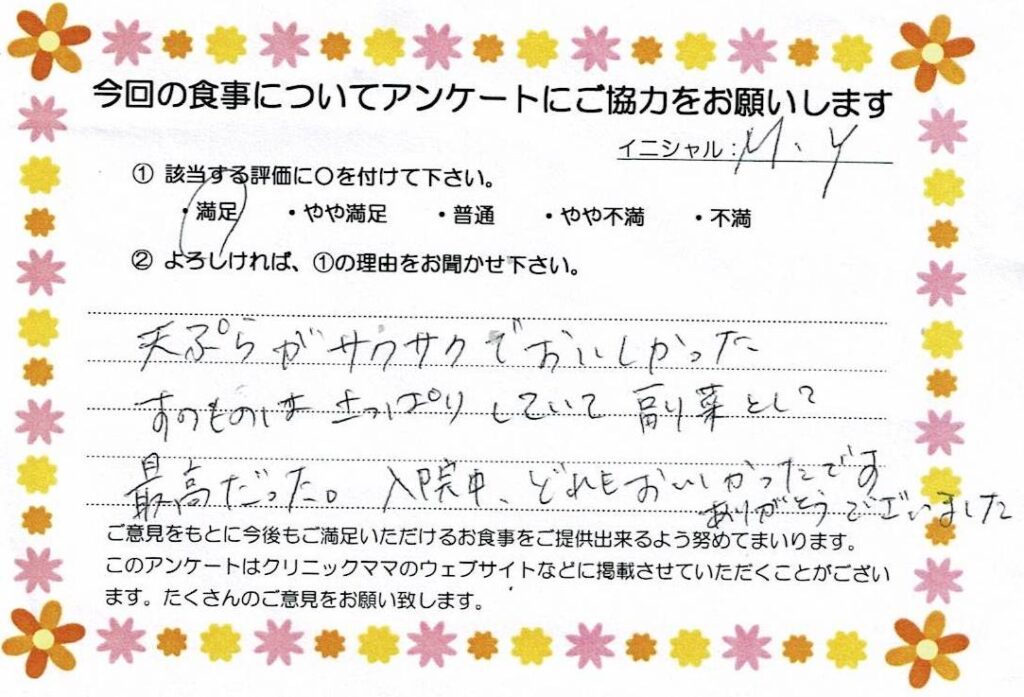 今回の食事についてアンケートにご協力をお願いします
イニシャル：M.Y
① 該当する評価に○を付けて下さい。
・満足 ・やや満足 ・普通 ・やや不満 ・不満
② よろしければ、①の理由をお聞かせ下さい。
天ぷらがサクサクでおいしかった
すのものはさっぱりしていて副菜として
最高だった。入院中、どれもおいしかったです
ありがとうございました
ご意見をもとに今後もご満足いただけるお食事をご提供出来るよう努めてまいります。
このアンケートはクリニックママのウェブサイトなどに掲載させていただくことがござい
ます。たくさんのご意見をお願い致します。